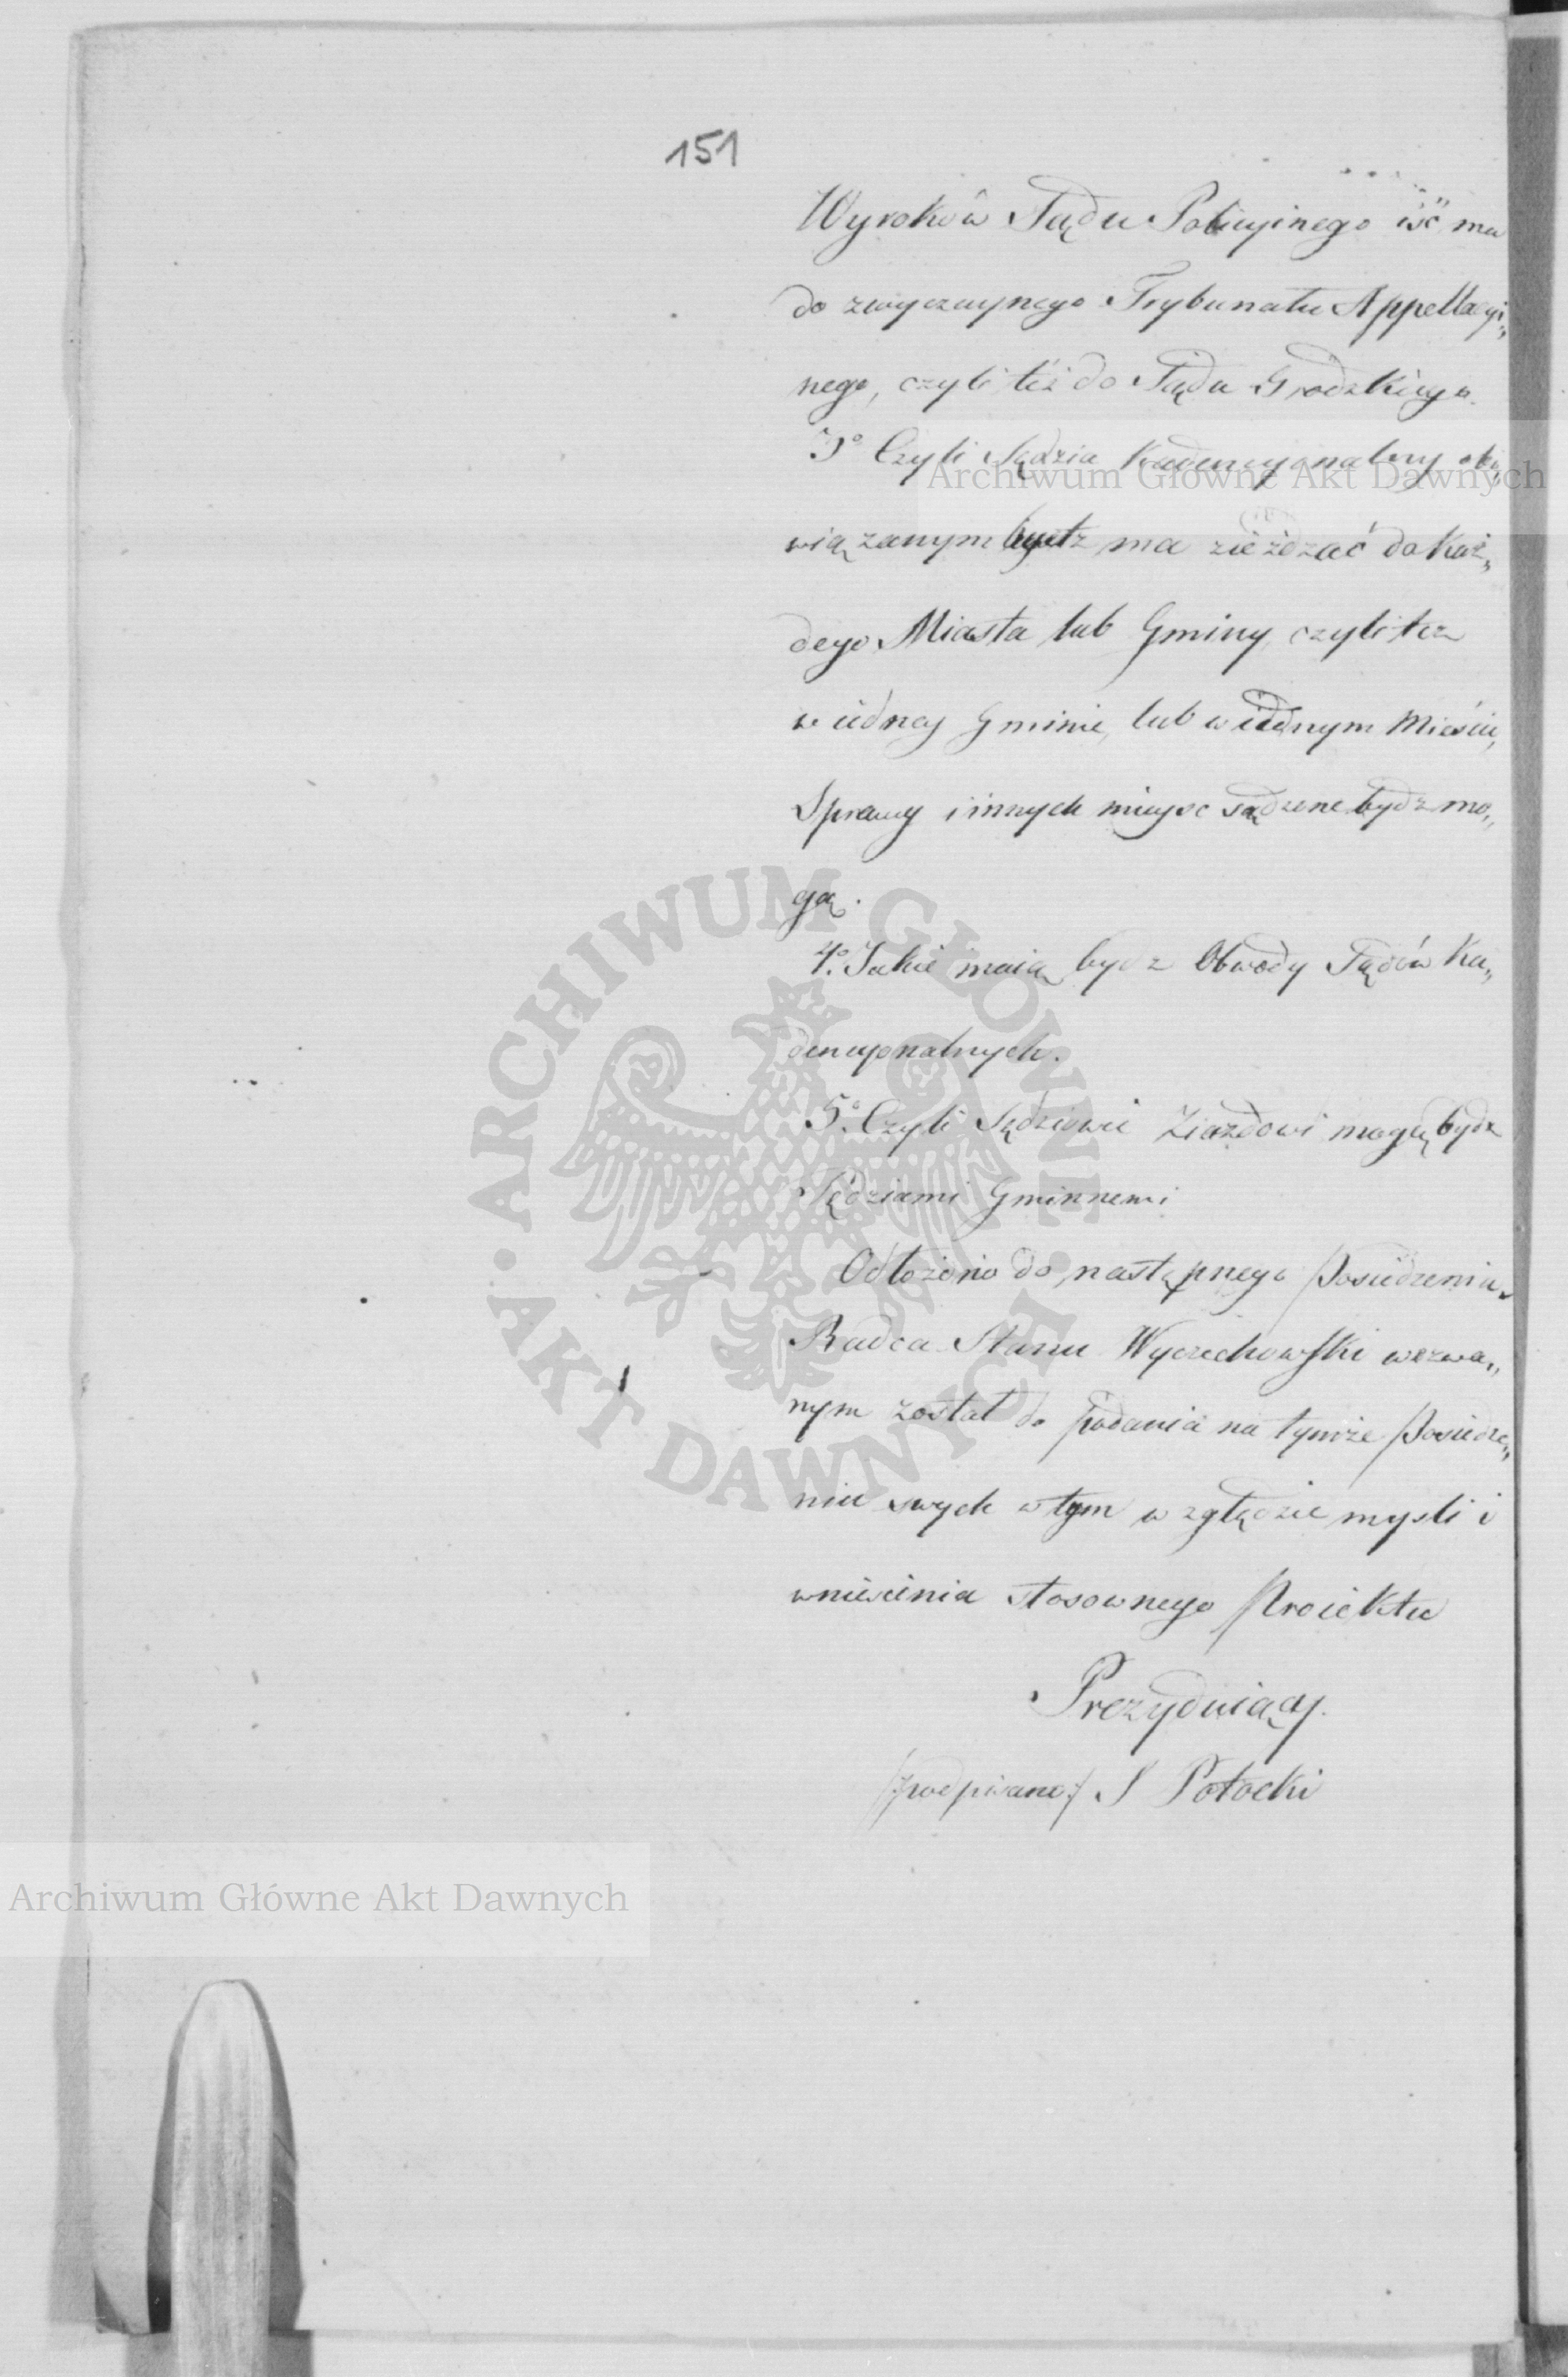 151
Wyroków Sądu Policyinego iść ma
do zwyczaynego Trybunału Appellacyi„
nego, czyli też do Sądu Grodzkiego.
3° Czyli Sędzia Kadencyonalny obo„
wiązanym bydz ma zieżdzać do Każ„
dego Miasta lub Gminy czyli tez
w iedney Gminie, lub w iednym Mieście,
Sprawy i innych mieysc sądzone bydz mo„
gą.
4° Jakie maią bydz Obwody Sądów Ka„
dencyonalnych.
5° Czyli Sędziowie Ziazdowi mogą bydz
Sędziami Gminnemi
Odłożono do następnego Posiedzenia.
Radca Stanu Wyczechowski wezwa„
nym został do podania na tymże Posiedze„
niu swych w tym względzie mysli i
wniesienia stosownego Proiektu
Prezyduiący.
/podpisano/ S Potocki
Archiwum Główne Akt Dawnych
ARCHIWUM GŁÓWNE · AKT DAWNYCH ·
Archiwum Główne Akt Dawnych